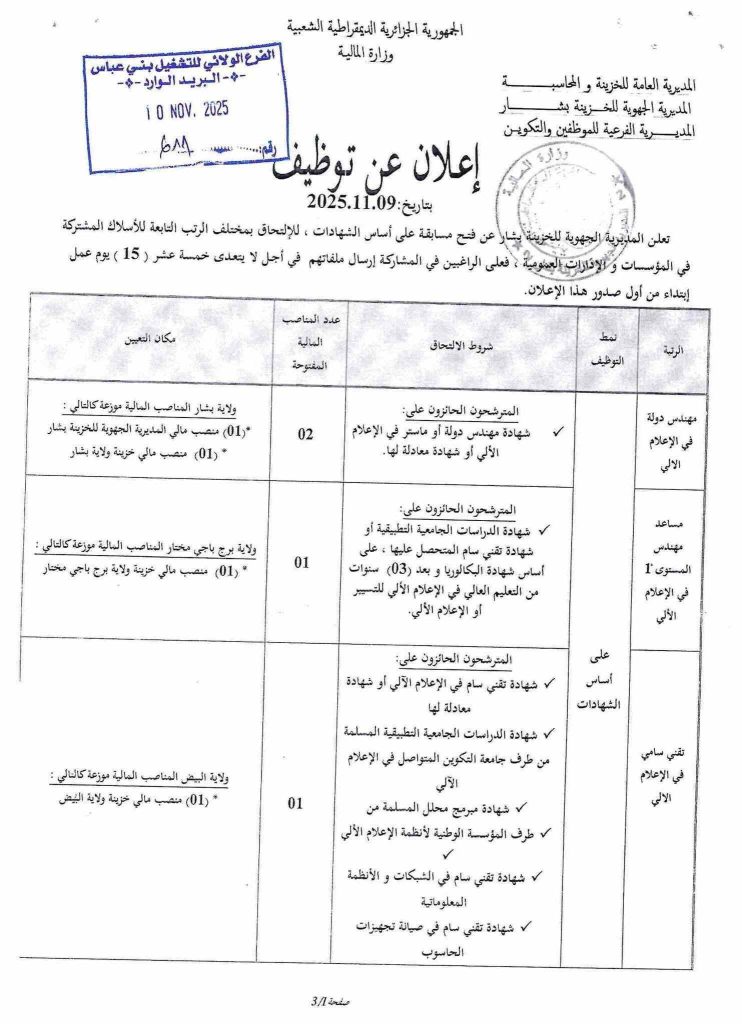 الجمهورية الجزائرية الديمقراطية الشعبية
وزارة المالية
الفرع الولائي للتشغيل بني عباس
-÷- البريد الوارد -÷-
10 NOV. 2025
رقم:
المديرية العامة للخزينة و المحاسبة
المديرية الجهوية للخزينة بشار
المديرية الفرعية للموظفين والتكوين
وزارة المالية
إعلان عن توظيف
بتاريخ:2025.11.09
تعلن المديرية الجهوية للخزينة بشار عن فتح مسابقة على أساس الشهادات ، للإلتحاق بمختلف الرتب التابعة للأسلاك المشتركة
في المؤسسات و الإدارات العمومية ، فعلى الراغبين في المشاركة إرسال ملفاتهم في أجل لا يتعدى خمسة عشر ( 15 ) يوم عمل
إبتداء من أول صدور هذا الإعلان.
الرتبة
نمط
التوظيف
شروط الالتحاق
عدد المناصب
المالية
المفتوحة
مكان التعيين
مهندس دولة
في الإعلام
الالي
على
أساس
الشهادات
المترشحون الحائزون على:
✓ شهادة مهندس دولة أو ماستر في الإعلام
الألي أو شهادة معادلة لها.
02
ولاية بشار المناصب المالية موزعة كالتالي :
*(01) منصب مالي المديرية الجهوية للخزينة بشار
* (01) منصب مالي خزينة ولاية بشار
مساعد
مهندس
المستوى 1
في الإعلام
الألي
المترشحون الحائزون على:
✓ شهادة الدراسات الجامعية التطبيقية أو
شهادة تقني سام المتحصل عليها ، على
أساس شهادة البكالوريا و بعد (03) سنوات
من التعليم العالي في الإعلام الألي للتسيير
أو الإعلام الألي.
01
ولاية برج باجي مختار المناصب المالية موزعة كالتالي :
* (01) منصب مالي خزينة ولاية برج باجي مختار
تقني سامي
في الإعلام
الالي
المترشحون الحائزون على:
✓ شهادة تقني سام في الإعلام الآلي أو شهادة
معادلة لها
✓ شهادة الدراسات الجامعية التطبيقية المسلمة
من طرف جامعة التكوين المتواصل في الإعلام
الآلي
✓ شهادة مبرمج محلل المسلمة من
✓ طرف المؤسسة الوطنية لأنظمة الإعلام الألي
✓
✓ شهادة تقني سام في الشبكات و الأنظمة
المعلوماتية
✓ شهادة تقني سام في صيانة تجهيزات
الحاسوب
01
ولاية البيض المناصب المالية موزعة كالتالي :
* (01) منصب مالي خزينة ولاية البيض
صفحة 3/1